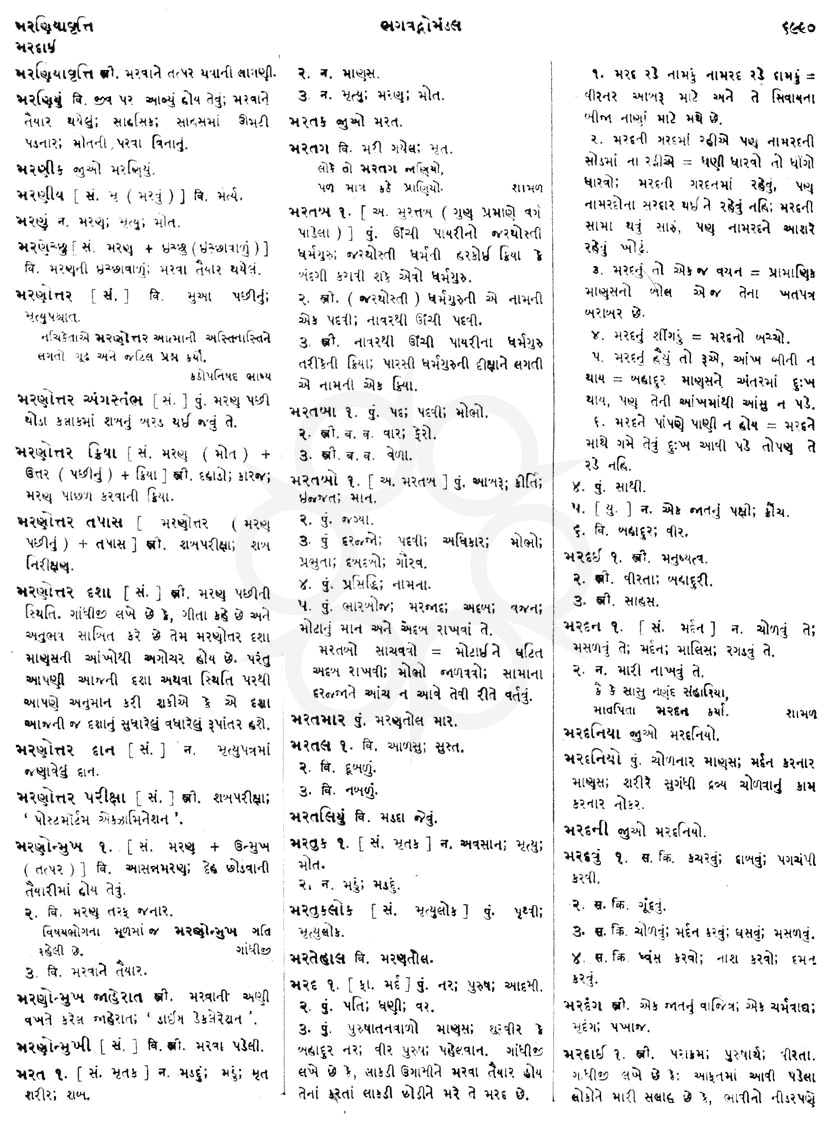 મરણિયાવૃત્તિ
ભગવદ્ગોમંડલ
૬૯૯૦
મરદાઈ
મરણિયાવૃત્તિ સ્ત્રી. મરવાને તત્પર થવાની લાગણી.
મરણિયું વિ. જીવ પર આવ્યું હોય તેવું; મરવાને
તૈયાર થયેલું; સાહસિક; સાહસમાં ઝંપટી
પડનાર; મોતની પરવા વિનાનું.
મરણીક જુઓ મરણિયું.
મરણીય [ સં. મૃ ( મરવું ) ] વિ. મર્ત્ય.
મરણું ન. મરણ; મૃત્યુ; મોત.
મરણેચ્છુ [ સં. મરણ + ઇચ્છુ (ઇચ્છાવાળું) ]
વિ. મરણની ઇચ્છાવાળું; મરવા તૈયાર થયેલં.
મરણોત્તર [ સં. ] વિ. મુઆ પછીનું;
મૃત્યુપશ્ચાત.
નચિકેતાએ મરણોત્તર આત્માની અસ્તિનાસ્તિને
લગતો ગૂઢ અને જટિલ પ્રશ્ન કર્યો.
કઠોપનિષદ ભાષ્ય
મરણોત્તર અંગસ્તંભ [ સં. ] પું. મરણ પછી
થોડા કલાકમાં શબનું બરડ થઈ જવું તે.
મરણોત્તર ક્રિયા [ સં. મરણ ( મોત ) +
ઉત્તર ( પછીનું ) + ક્રિયા ] સ્ત્રી. દહાડો; કારજ;
મરણ પાછળ કરવાની ક્રિયા.
મરણોત્તર તપાસ [ મરણોત્તર ( મરણ
પછીનું ) + તપાસ ] સ્ત્રી. શબપરીક્ષા; શબ
નિરીક્ષણ.
મરણોત્તર દશા [ સં. ] સ્ત્રી. મરણ પછીની
સ્થિતિ. ગાંધીજી લખે છે કે, ગીતા કહે છે અને
અનુભવ સાબિત કરે છે તેમ મરણોત્તર દશા
માણસની આંખોથી અગોચર હોય છે. પરંતુ
આપણી આજની દશા અથવા સ્થિતિ પરથી
આપણે અનુમાન કરી શકીએ કે એ દશા
આજની જ દશાનું સુધારેલું વધારેલું રૂપાંતર હશે.
મરણોત્તર દાન [ સં. ] ન. મૃત્યુપત્રમાં
જણાવેલું દાન.
મરણોત્તર પરીક્ષા [ સં. ] સ્ત્રી. શબપરીક્ષા;
‘ પોસ્ટમૉર્ટમ એક્ઝામિનેશન ’.
મરણોન્મુખ ૧. [ સં. મરણ + ઉન્મુખ
( તત્પર ) ] વિ. આસન્નમરણ; દેહ છોડવાની
તૈયારીમાં હોય તેવું.
૨. વિ. મરણ તરફ જનાર.
વિષયભોગના મૂળમાં જ મરણોન્મુખ ગતિ
રહેલી છે. ગાંધીજી
૩. વિ. મરવાને તૈયાર.
મરણોન્મુખ જાહેરાત સ્ત્રી. મરવાની અણી
વખતે કરેલ જાહેરાત; ‘ ડાઈંગ ડેક્લેરેશન ’.
મરણોન્મુખી [ સં. ] વિ. સ્ત્રી. મરવા પડેલી.
મરત ૧. [ સં. મૃતક ] ન. મડદું; મડું; મૃત
શરીર; શબ.
૨. ન. માણસ.
૩. ન. મૃત્યુ; મરણ; મોત.
મરતક જુઓ મરત.
મરતગ વિ. મરી ગયેલ; મૃત.
લોકે તો મરતગ જાણિયો,
પળ માત્ર કહે પ્રાણિયો. શામળ
મરતબ ૧. [ અ. મુરત્તબ ( ગુણ પ્રમાણે વર્ગ
પાડેલા ) ] પું. ઊંચી પાયરીનો જરથોસ્તી
ધર્મગુરુ; જરથોસ્તી ધર્મની હરકોઈ ક્રિયા કે
બંદગી કરાવી શકે એવો ધર્મગુરુ.
૨. સ્ત્રી. ( જરથોસ્તી ) ધર્મગુરુની એ નામની
એક પદવી; નાવરથી ઊંચી પદવી.
૩. સ્ત્રી. નાવરથી ઊંચી પાયરીના ધર્મગુરુ
તરીકેની ક્રિયા; પારસી ધર્મગુરુની દીક્ષાને લગતી
એ નામની એક ક્રિયા.
મરતબા ૧. પું. પદ; પદવી; મોભો.
૨. સ્ત્રી. બ. વ. વાર; ફેરો.
૩. સ્ત્રી. બ. વ. વેળા.
મરતબો ૧. [ અ. મરતબ ] પું. આબરૂ; કીર્તિ;
ઇજ્જત; માન.
૨. પું. જગ્યા.
૩. પું દરજ્જો; પદવી; અધિકાર; મોભો;
પ્રભુતા; દબદબો; ગૌરવ.
૪. પું. પ્રસિદ્ધિ; નામના.
૫. પું. ભારબોજ; મરજાદ; અદબ; વજન;
મોટાનું માન અને અદબ રાખવાં તે.
મરતબો સાચવવો = મોટાઈને ઘટિત
અદબ રાખવી; મોભો જાળવવો; સામાના
દરજ્જાને આંચ ન આવે તેવી રીતે વર્તવું.
મરતમાર પું. મરણતોલ માર.
મરતલ ૧. વિ. આળસુ; સુસ્ત.
૨. વિ. દૂબળું.
૩. વિ. નબળું.
મરતલિયું વિ. મડદા જેવું.
મરતુક ૧. [ સં. મૃતક ] ન. અવસાન; મૃત્યુ;
મોત.
૨. ન. મડું; મડદું.
મરતુકલોક [ સં. મૃત્યુલોક ] પું. પૃથ્વી;
મૃત્યુલોક.
મરતેહાલ વિ. મરણતોલ.
મરદ ૧. [ ફા. મર્દ ] પું. નર; પુરુષ; આદમી.
૨. પું. પતિ; ધણી; વર.
૩. પું. પુરુષાતનવાળો માણસ; શૂરવીર કે
બહાદુર નર; વીર પુરુષ; પહેલવાન. ગાંધીજી
લખે છે કે, લાકડી ઉગામીને મરવા તૈયાર હોય
તેના કરતાં લાકડી છોડીને મરે તે મરદ છે.
૧. મરદ રડે નામકું નામરદ રડે દામકું =
વીરનર આબરૂ માટે અને તે સિવાયના
બીજા નાણાં માટે મથે છે.
૨. મરદની ગરદમાં રહીએ પણ નામરદની
સોડમાં ના રહીએ = ધણી ધારવો તો ધીંગો
ધારવો; મરદની ગરદનમાં રહેવું, પણ
નામરદોના સરદાર થઈને રહેવું નહિ; મરદની
સામા થવું સારું, પણ નામરદને આશરે
રહેવું ખોટું.
૩. મરદનું તો એક જ વચન = પ્રામાણિક
માણસનો બોલ એ જ તેના ખતપત્ર
બરાબર છે.
૪. મરદનું શીંગડું = મરદનો બચ્ચો.
૫. મરદનું હૈયું તો રૂએ, આંખ ભીની ન
થાય = બહાદુર માણસને અંતરમાં દુઃખ
થાય, પણ તેની આંખમાંથી આંસુ ન પડે.
૬. મરદને પાંપણે પાણી ન હોય = મરદને
માથે ગમે તેવું દુઃખ આવી પડે તોપણ તે
રડે નહિ.
૪. પું. સાથી.
૫. [ યુ. ] ન. એક જાતનું પક્ષી; ક્રૌંચ.
૬. વિ. બહાદુર; વીર.
મરદઈ ૧. સ્ત્રી. મનુષ્યત્વ.
૨. સ્ત્રી. વીરતા; બહાદુરી.
૩. સ્ત્રી. સાહસ.
મરદન ૧. [ સં. મર્દન ] ન. ચોળવું તે;
મસળવું તે; મર્દન; માલિસ; રગડવું તે.
૨. ન. મારી નાખવું તે.
કે કે સાસુ નણંદ સંહારિયા,
માવપિતા મરદન કર્યાં. શામળ
મરદનિયા જુઓ મરદનિયો.
મરદનિયો પું. ચોળનાર માણસ; મર્દન કરનાર
માણસ; શરીરે સુગંધી દ્રવ્ય ચોળવાનું કામ
કરનાર નોકર.
મરદની જુઓ મરદનિયો.
મરદવું ૧. સ. ક્રિ. કચરવું; દાબવું; પગચંપી
કરવી.
૨. સ. ક્રિ. ગૂંદવું.
૩. સ. ક્રિ. ચોળવું; મર્દન કરવું; ઘસવું; મસળવું.
૪. સ. ક્રિ. ધ્વંસ કરવો; નાશ કરવો; દમન
કરવું.
મરદંગ સ્ત્રી. એક જાતનું વાજિંત્ર; એક ચર્મવાદ્ય;
મૃદંગ; પખાજ.
મરદાઈ ૧. સ્ત્રી. પરાક્રમ; પુરુષાર્થ; વીરતા.
ગાંધીજી લખે છે કેઃ આફતમાં આવી પડેલા
લોકોને મારી સલાહ છે કે, ભાવીનો નીડરપણે